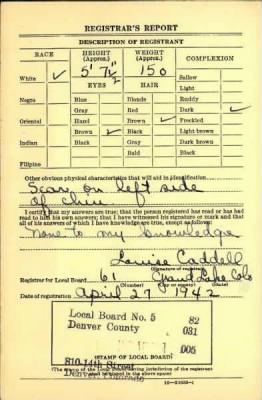 REGISTRAR'S REPORT
DESCRIPTION OF REGISTRANT
RACE HEIGHT (Approx.) WEIGHT (Approx.) COMPLEXION
White ✓ 5' 7½" 150 Sallow
EYES HAIR Light
Negro Blue Blonde Ruddy
Gray Red Dark ✓
Oriental Hazel Brown ✓ Freckled
Brown ✓ Black Light brown
Indian Black Gray Dark brown
Bald Black
Filipino
Other obvious physical characteristics that will aid in identification
Scar on left side
of chin
I certify that my answers are true; that the person registered has read or has had
read to him his own answers; that I have witnessed his signature or mark and that
all of his answers of which I have knowledge are true, except as follows:
None to my knowledge
Louise Caddell
(Signature of registrar)
Registrar for Local Board 61 Grand Lake Colo
(Number) (City or county)
Date of registration April 27 1942
Local Board No. 5 82
Denver County 031
005
810 14th Street
(STAMP OF LOCAL BOARD)
Denver, Colorado
(The stamp of the Local Board having jurisdiction of the registrant
shall be placed in the above space)